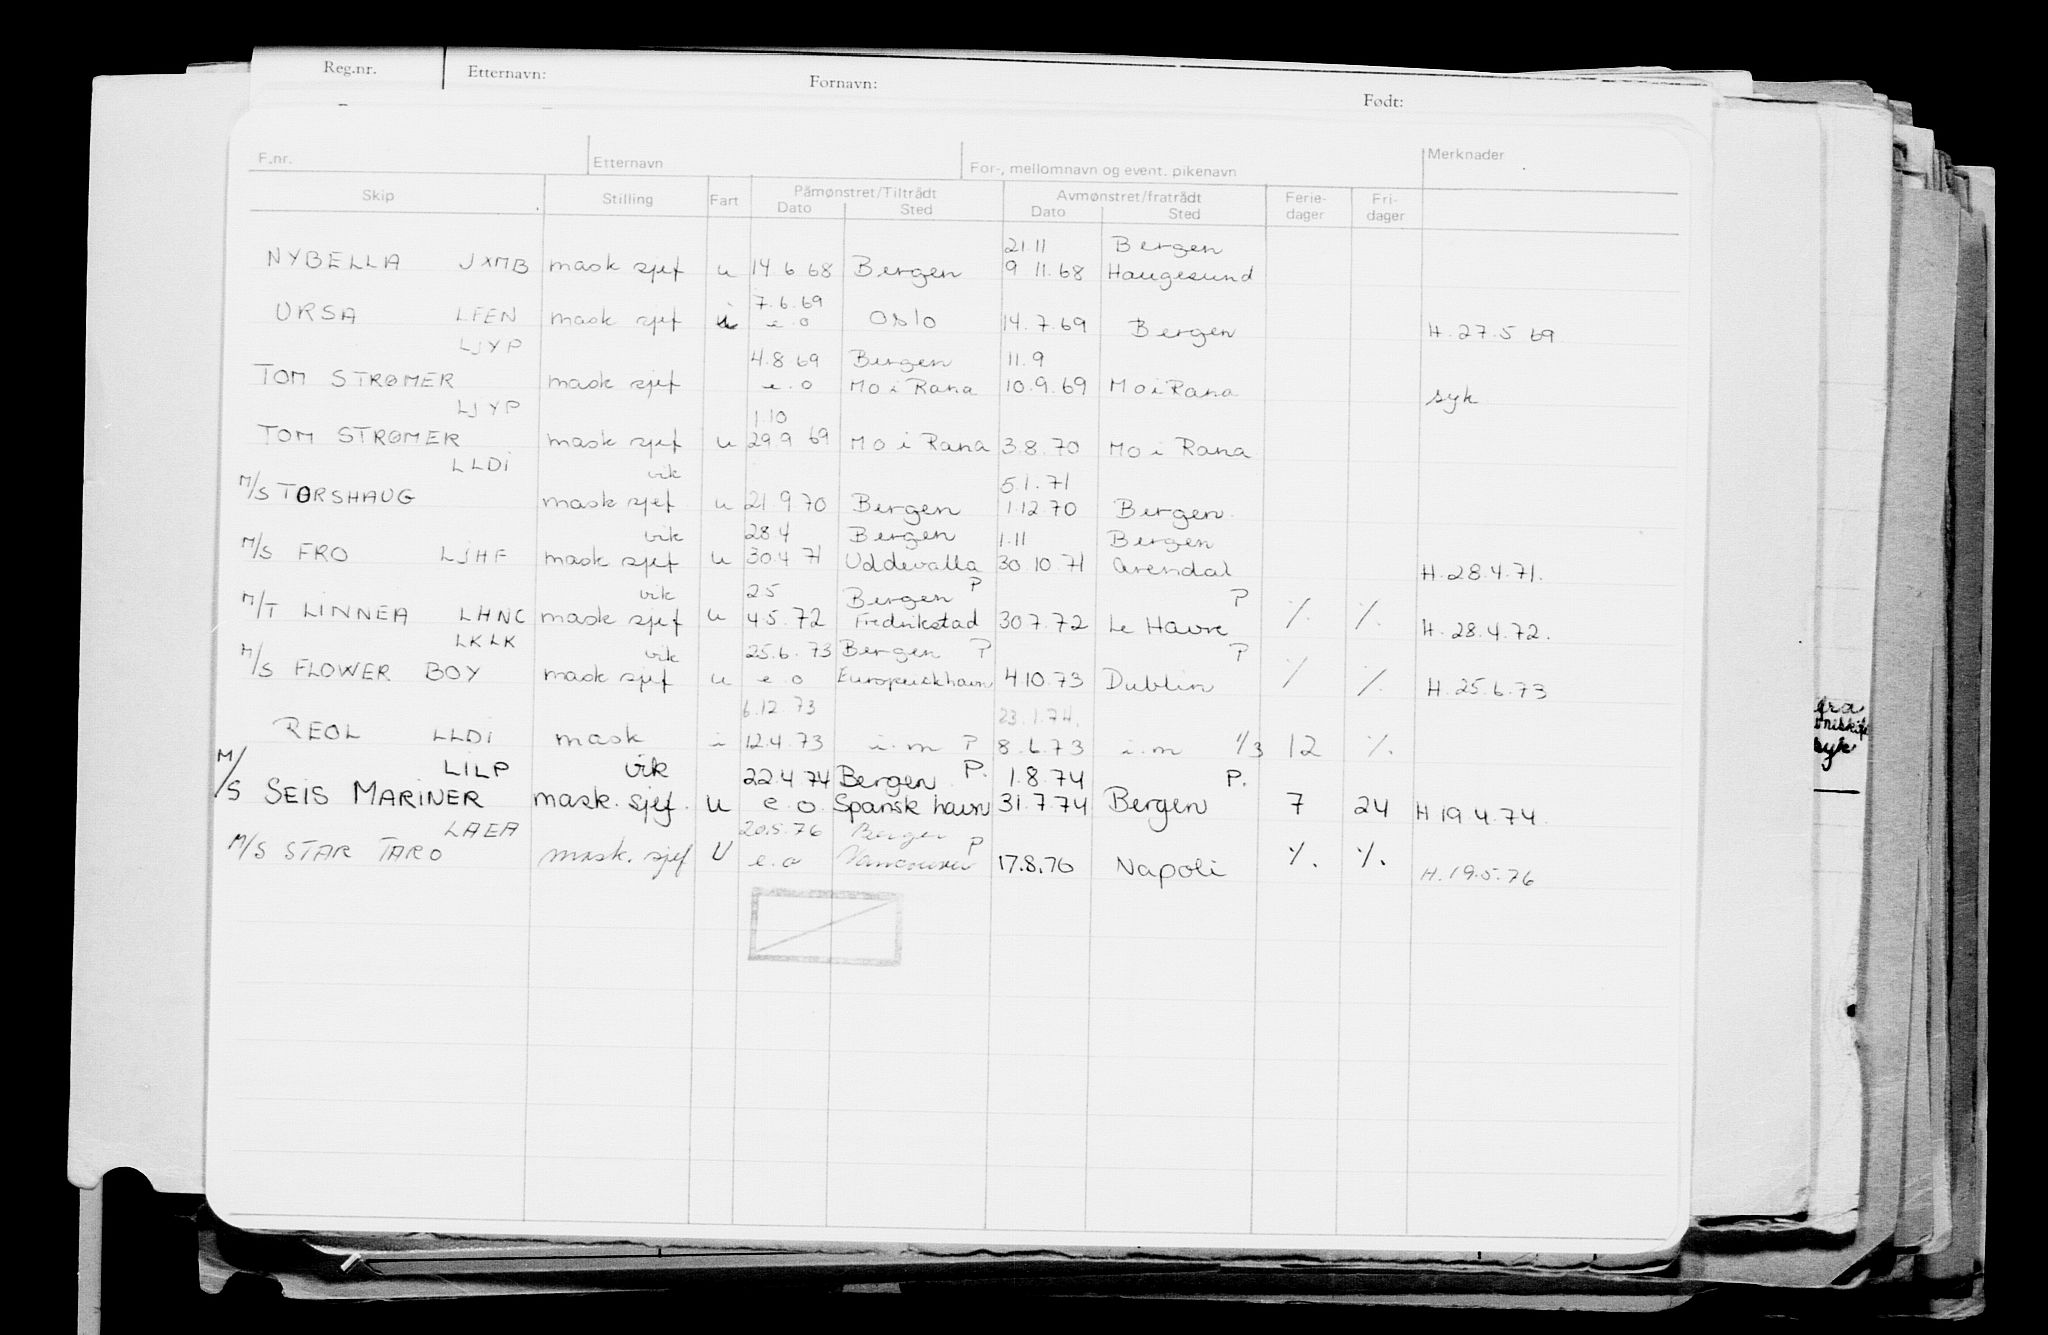 Reg.nr. Etternavn: Fornavn: Født:
F.nr. Etternavn For-, mellomnavn og event. pikenavn Merknader
Skip Stilling Fart Påmønstret/Tiltrådt Avmønstret/fratrådt Ferie- Fri-
Dato Sted Dato Sted dager dager
21.11 Bergen
NYBELLA JXMB mask sjef u 14.6 68 Bergen 9 11.68 Haugesund
7.6.69
URSA LFEN mask sjef i e.o Oslo 14.7.69 Bergen H.27.5 69
LJYP 4.8 69 Bergen 11.9
TOM STRØMER mask sjef e.o Mo i Rana 10.9.69 Mo i Rana syk
LJYP 1.10
TOM STRØMER mask sjef u 29.9 69 Mo i Rana 3.8.70 Mo i Rana
LLDI vik 5.1.71
M/S TORSHAUG mask sjef u 21 9 70 Bergen 1.12.70 Bergen.
vik 28.4 Bergen 1.11 Bergen
M/S FRO LJHF mask sjef u 30.4 71 Uddevalla 30.10.71 Arendal H.28.4.71.
vik 2.5 Bergen P P
M/T LINNEA LHNC mask sjef u 4.5.72 Fredrikstad 30 7.72 Le Havre ./. ./. H.28.4.72.
LKLK vik 25.6.73 Bergen P P
M/S FLOWER BOY mask sjef u e.o 4.10.73 Dublin ./. ./. H.25.6.73
6.12.73 23.1.74.
REOL LLDI mask i 12.4.73 i.m P 8.6.73 i.m 1/3 12 ./.
LILP vik 22.4 74 Bergen P. 1.8.74 P.
M/S SEIS MARINER mask. sjef. u e.o. Spansk havn 31.7.74 Bergen 7 24 H 19.4.74.
LAEA 20.5.76 Bergen P
M/S STAR TARO mask. sjef U e.o Vancouver 17.8.76 Napoli ./. ./. H.19.5.76
syk